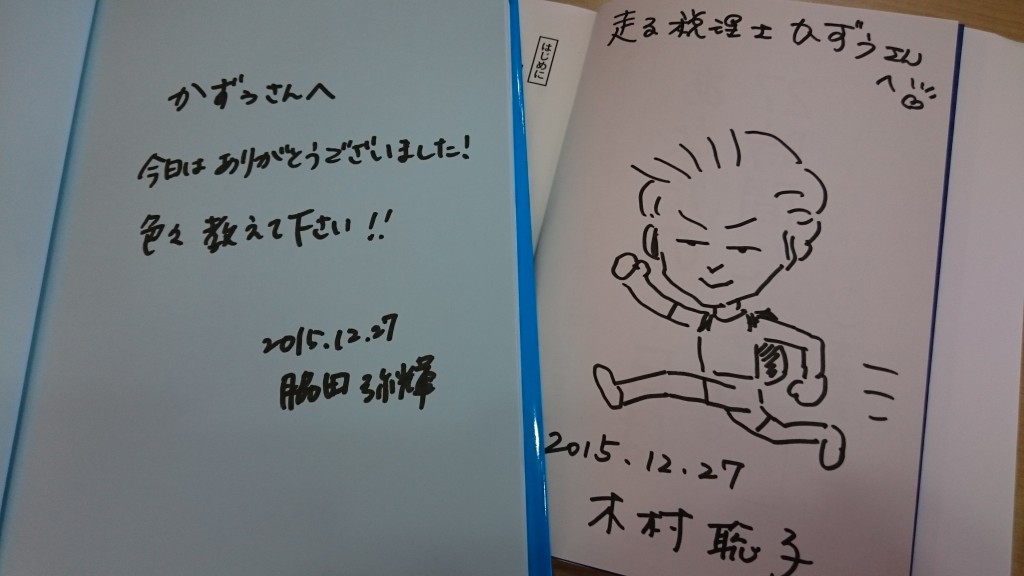 かずぅさんへ
今日はありがとうございました!
色々教えて下さい!!
2015.12.27
脇田弥輝
はじめに
走る税理士かずぅさん
へ
2015.12.27
木村聡子